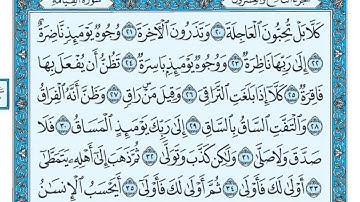 سورة القيامة
الجزء التاسع والعشرون
كَلَّا بَلْ تُحِبُّونَ ٱلْعَاجِلَةَ ٢٠ وَتَذَرُونَ ٱلْءَاخِرَةَ ٢١ وُجُوهٌ يَوْمَئِذٍ نَّاضِرَةٌ
٢٢ إِلَىٰ رَبِّهَا نَاظِرَةٌ ٢٣ وَوُجُوهٌ يَوْمَئِذٍۭ بَاسِرَةٌ ٢٤ تَظُنُّ أَن يُفْعَلَ بِهَا
فَاقِرَةٌ ٢٥ كَلَّآ إِذَا بَلَغَتِ ٱلتَّرَاقِىَ ٢٦ وَقِيلَ مَنْ رَاقٍ ٢٧ وَظَنَّ أَنَّهُ ٱلْفِرَاقُ
٢٨ وَٱلْتَفَّتِ ٱلسَّاقُ بِٱلسَّاقِ ٢٩ إِلَىٰ رَبِّكَ يَوْمَئِذٍ ٱلْمَسَاقُ ٣٠ فَلَا
صَدَّقَ وَلَا صَلَّىٰ ٣١ وَلَٰكِن كَذَّبَ وَتَوَلَّىٰ ٣٢ ثُمَّ ذَهَبَ إِلَىٰٓ أَهْلِهِۦ يَتَمَطَّىٰٓ
٣٣ أَوْلَىٰ لَكَ فَأَوْلَىٰ ٣٤ ثُمَّ أَوْلَىٰ لَكَ فَأَوْلَىٰٓ ٣٥ أَيَحْسَبُ ٱلْإِنسَٰنُ